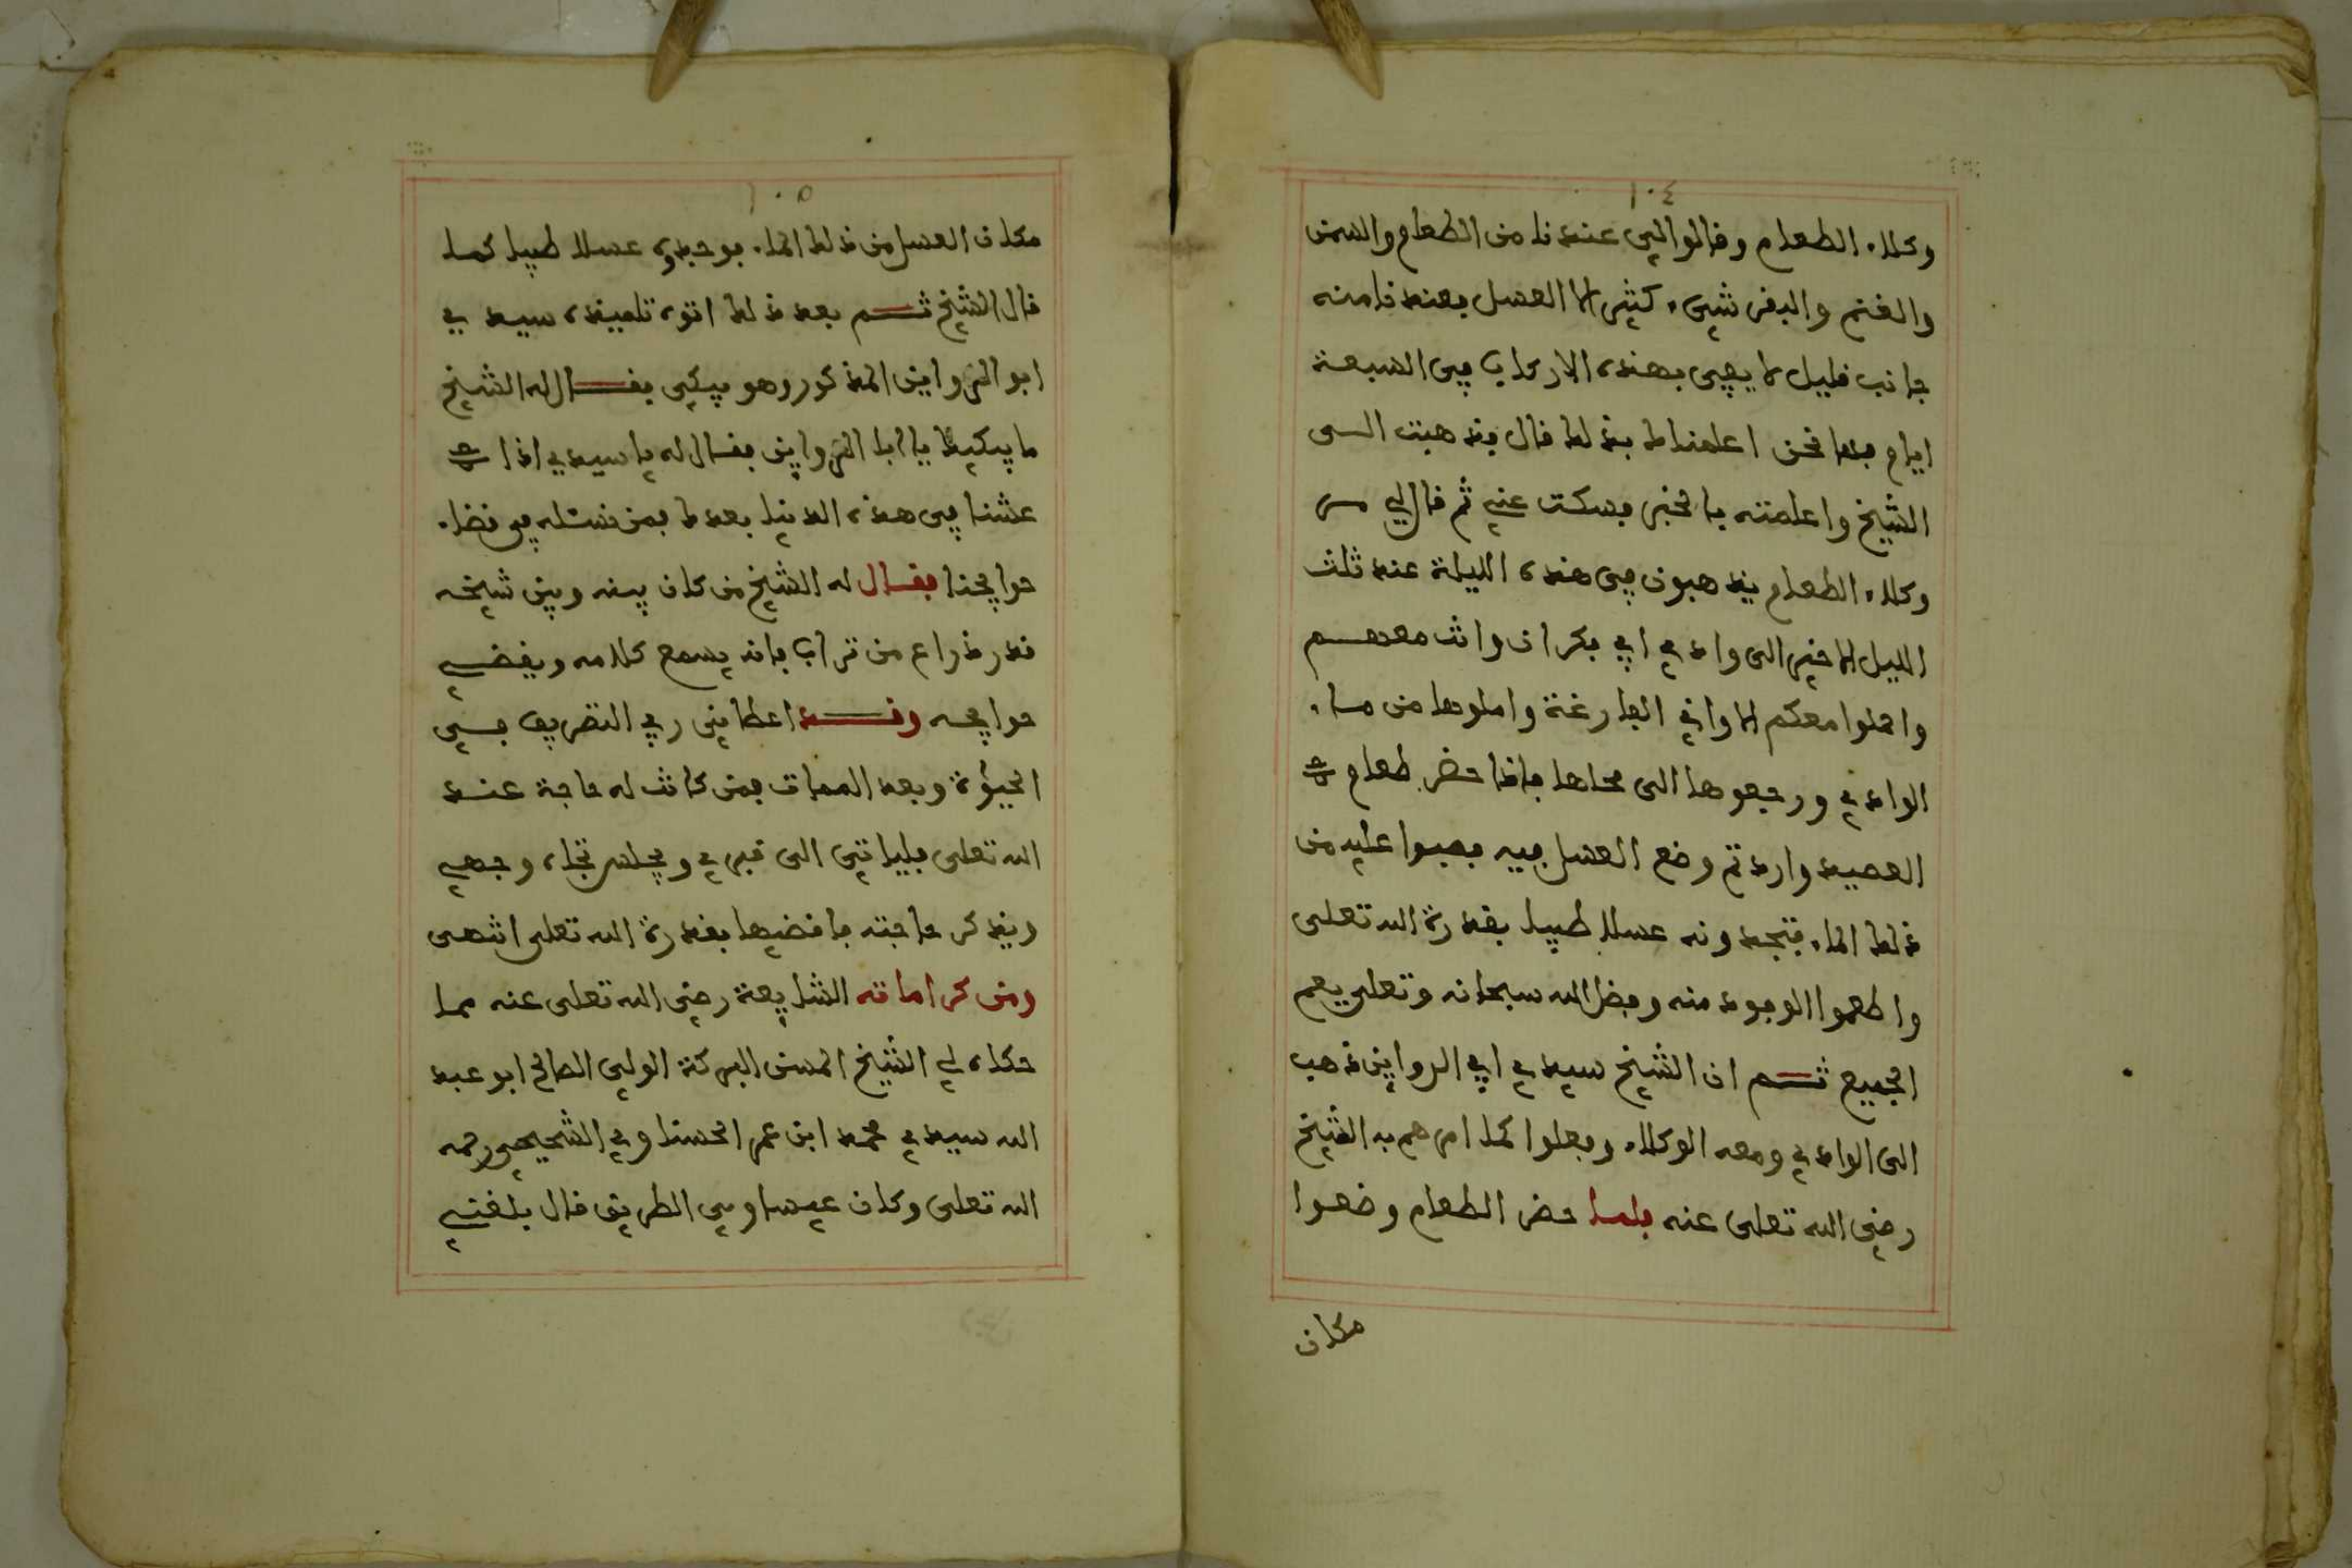 ١٠٤
وكلاء الطعام وقالوا الي عندنا من الطعام والسمن
والغنم والبقر شيء كثير الا العسل بعندنا منه
جانب قليل لا يفي بهذه الاركاب في السبعة
ايام فها نحن اعلمناك بذلك قال فذهبت الى
الشيخ واعلمته بالخبر فسكت عني ثم قال لي مر
وكلاء الطعام يذهبون في هذه الليلة عند ثلث
الليل الاخير الى وادي ابي بكران وانت معهم
واحملوا معكم الاواني الفارغة واملوها من ماء
الوادي ورجعوها الى محلها فاذا حضر طعام
العصيد واردتم وضع العسل فيه فصبوا عليه من
ذلك الماء فتجدونه عسلا طيبا بقدرة الله تعلى
واطعموا الوفود منه وفضل الله سبحانه وتعلى يعم
الجميع ثم ان الشيخ سيدي ابي الروايين ذهب
الى الوادي ومعه الوكلاء وفعلوا كما امرهم به الشيخ
رضي الله تعلى عنه فلما حضر الطعام وضعوا
مكان
١٠٥
مكان العسل من ذلك الماء فوجدوه عسلا طيبا كما
قال الشيخ ثم بعد ذلك اتوه تلميذه سيدي
ابو الروايين المذكور وهو يبكي فقال له الشيخ
ما يبكيك يا ابا الروايين فقال له يا سيدي اذا
عشنا في هذه الدنيا بعدك فمن نسئله في قضاء
حوايجنا فقال له الشيخ من كان بينه وبين شيخه
قدر ذراع من تراب فانه يسمع كلامه ويقضي
حوايجه وقد اعطاني ربي التصريف في
الحيوة وبعد الممات فمن كانت له حاجة عند
الله تعلى فلياتي الى قبري ويجلس تجاه وجهي
ويذكر حاجته فاقضيها بقدرة الله تعلى انتهى
ومن كراماته الشايعة رضي الله تعلى عنه مما
حكاه لي الشيخ المسن البركة الولي الصالح ابو عبد
الله سيدي محمد ابن عمر المحسناوي الشحيحي رحمه
الله تعلى وكان عيساوي الطريق قال بلغني